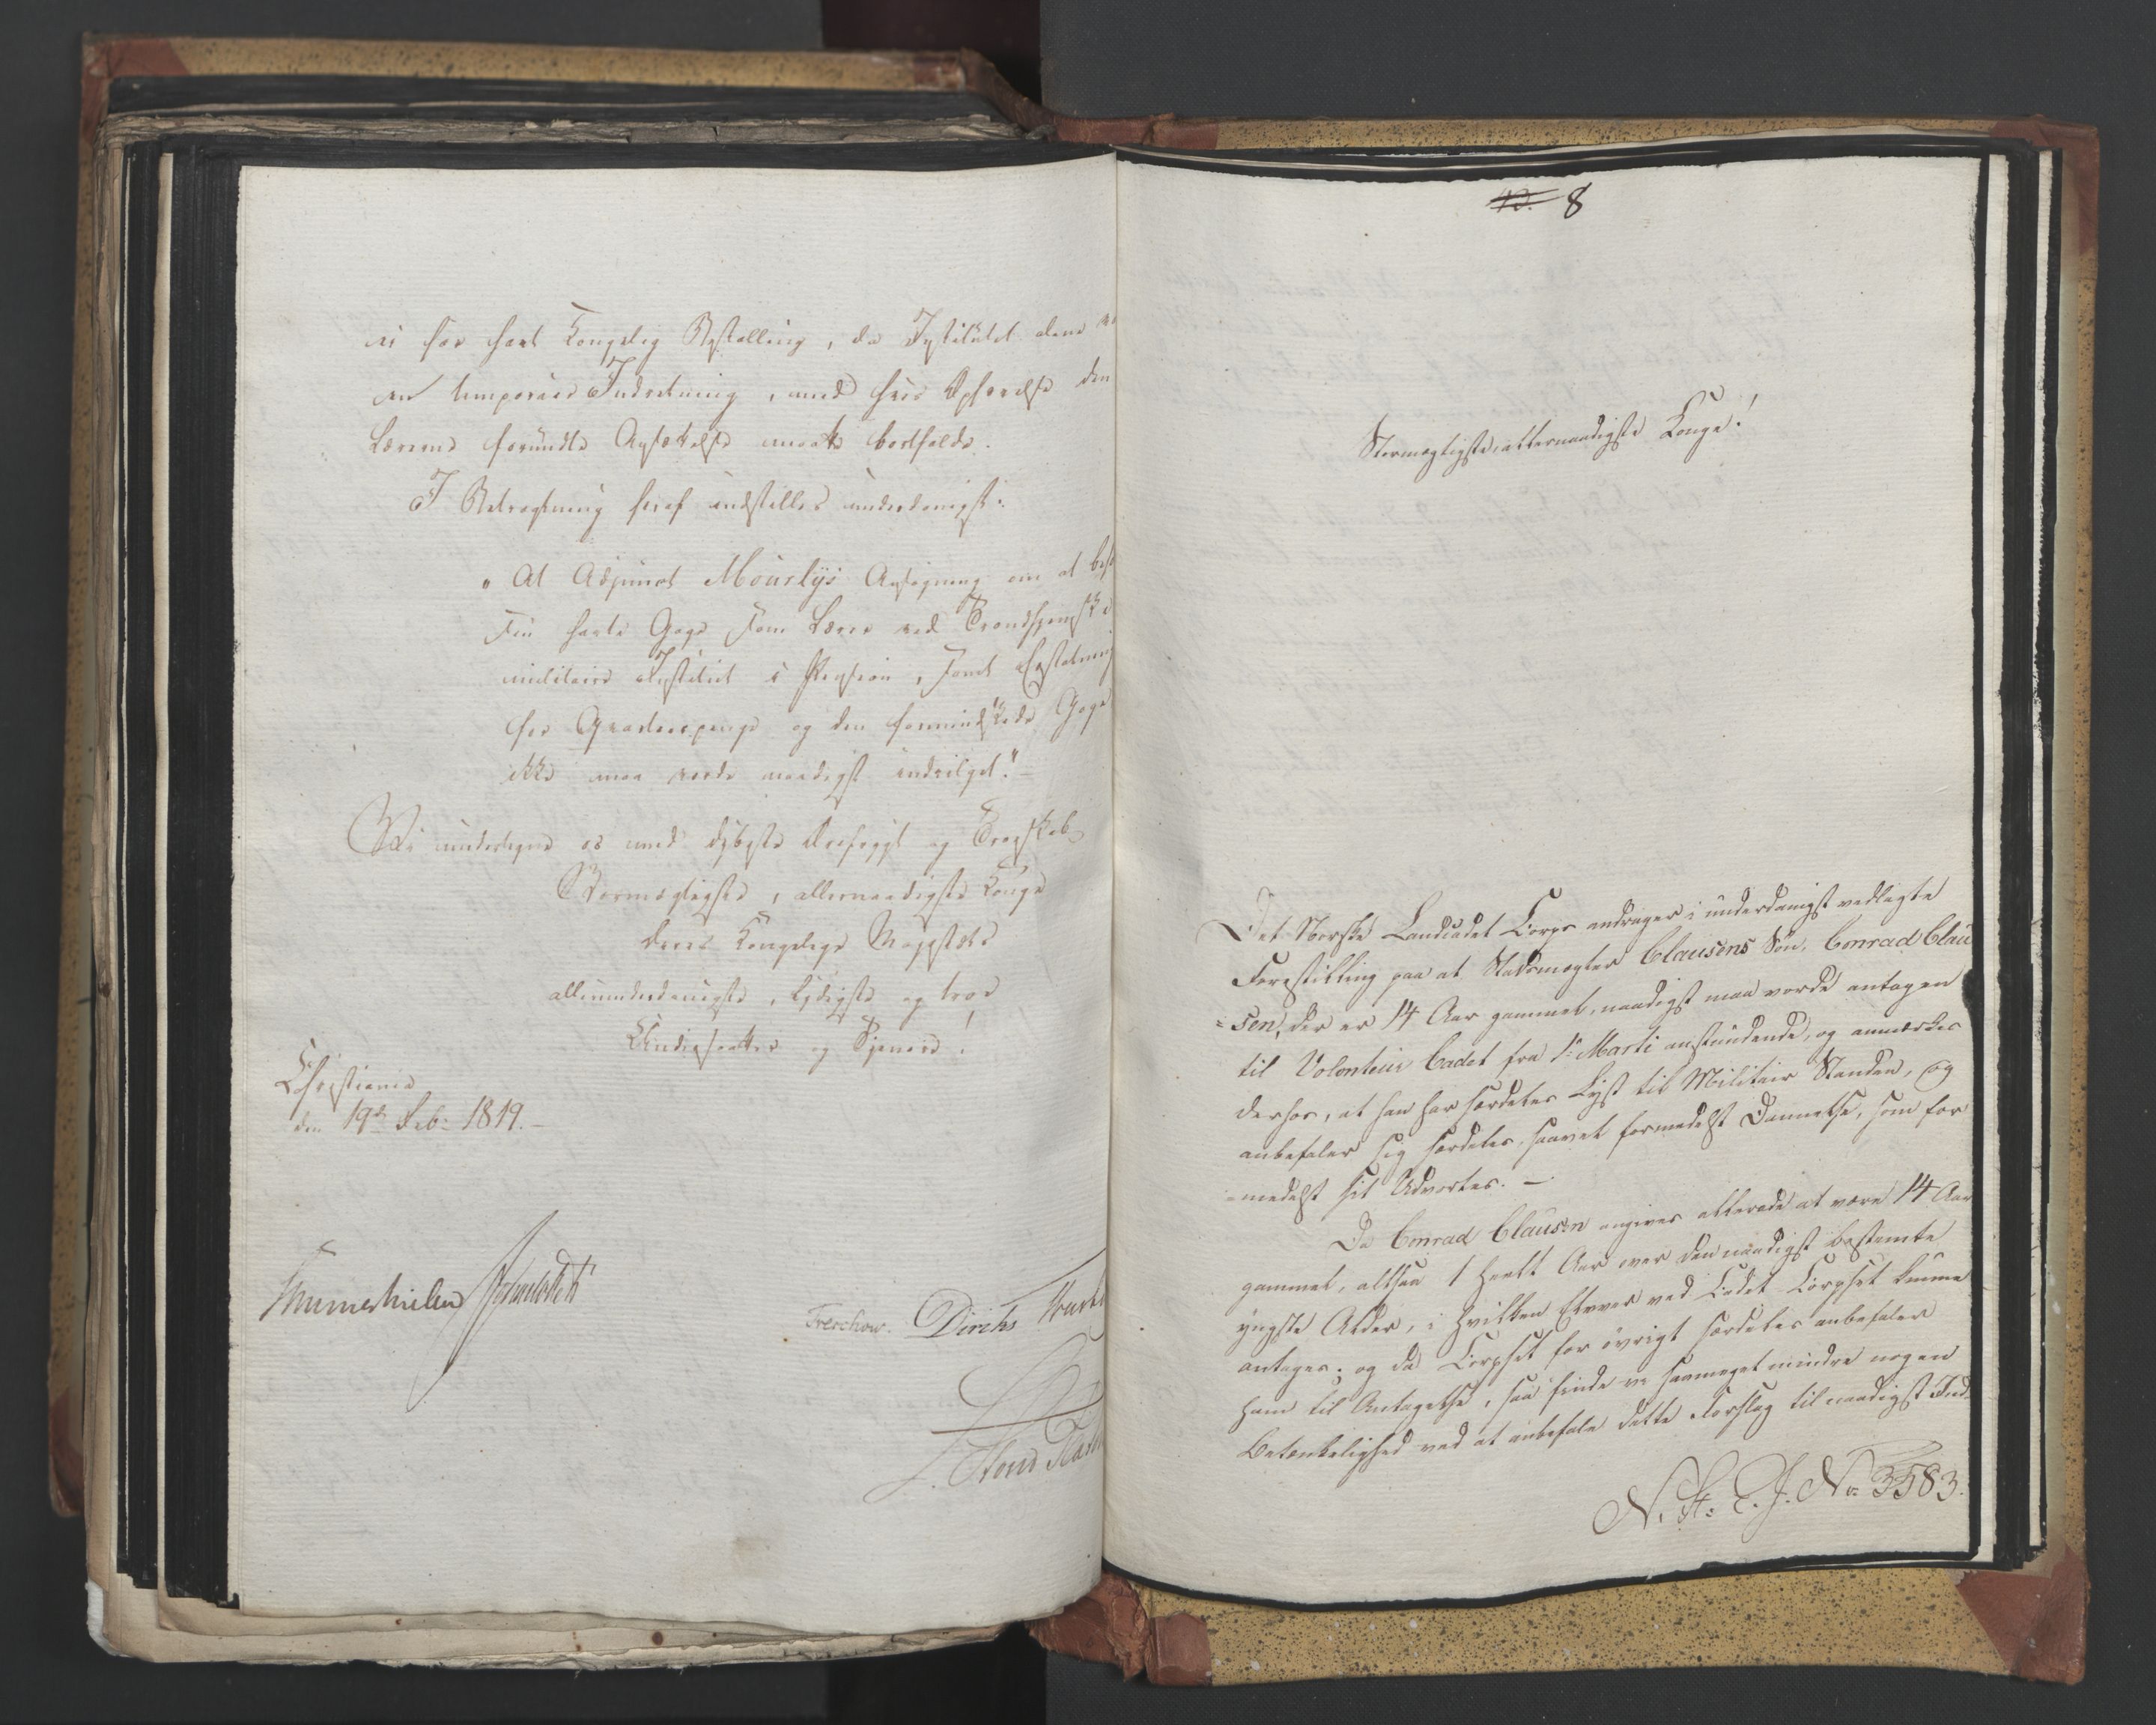 ei har havt Kongelig Bestalling, da Institutet alene
en temporair Indretning, med hvis Ophævelse den
Lærerne forundte Ansættelse maatte bortfalde.
I Betragtning heraf indstilles underdanigst:
"At Adjunct Mourlys Ansøgning om at
sin havte Gage som Lærer ved Trondhjemske
militaire Institut i Pension, samt Erstatning
for Qvarteerpenge og den formindskede Gage
ikke maa vorde naadigst indvilget." –
Vi undertegne os med dybeste Ærefrygt og Troeskab
Stormægtigste, allernaadigste Konge
Deres Kongelige Majestæts
allerunderdanigste, lydigste og troe
Undersaatter og Tjenere!
Christiania
den 19de Feb: 1819. –
Treschow. Diriks
13. 8
Stormægtigste, allernaadigste Konge!
Det Norske Landcadet Corps andrager i underdanigst vedlagte
Forestilling paa at Clausens Søn, Conrad Clau
=sen, der er 14 Aar gammel, naadigst maa vorde antagen
til Volonteur Cadet fra 1ste Marti anstundende, og anmærker
derhos, at han har særdeles Lyst til Militair Standen, og
anbefaler sig særdeles, saavel formedelst Dannelse, som for
=medelst sit Udvortes. –
Da Conrad Clausen angives allerede at være 14 Aar
gammel, altsaa 1 heelt Aar over den naadigst bestemte
yngste Alder, i hvilken Elever ved Cadet Corpset kunne
antages; og da Corpset for övrigt særdeles anbefaler
ham til Antagelse, saa finde vi saameget mindre nogen
Betænkelighed ved at anbefale dette Forslag til naadigst Ind
N. St: C. J. No 3583.